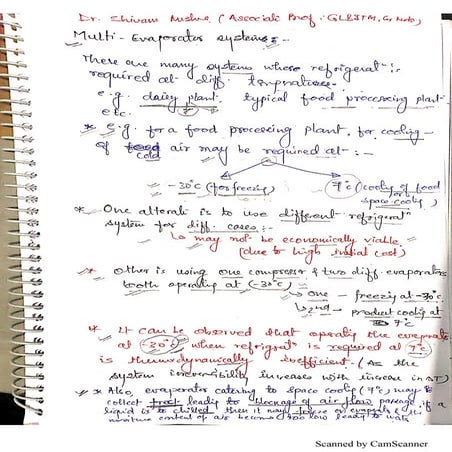 Dr. Shivam Mishra (Associate Prof. GLBITM, Gr Noida)
Multi-Evaporator systems:-
There are many systems where refrigeratn is
required at diff. temperatures.
e.g. dairy plant, typical food processing plant
etc.
* E.g. for a food processing plant, for cooling
of food cold air may be required at :-
-30°C (for freezing) 7°C (cooling of food
space cooling)
* One alternate is to use different refrigeratn
system for diff. cases:-
↳ may not be economically viable,
(due to high initial cost)
* Other is using one compressor & two diff. evaporators
both operating at (-30°C)
↳ one - freezing at -30°C
↳ 2nd - product cooling at
7°C
* It can be observed that operating the evaporator
at (-30°C) when refrigeratn is required at 7°C
is thermodynamically inefficient. (As the
system irreversibility increases with increase in ΔT)
* Also, evaporator catering to space cooling (7°C) may
collect frost leading to blockage of air flow passage, if a
liquid is to chilled then it may freeze on evaporator & the
moisture content of air becomes too low leading to water
Scanned by CamScanner